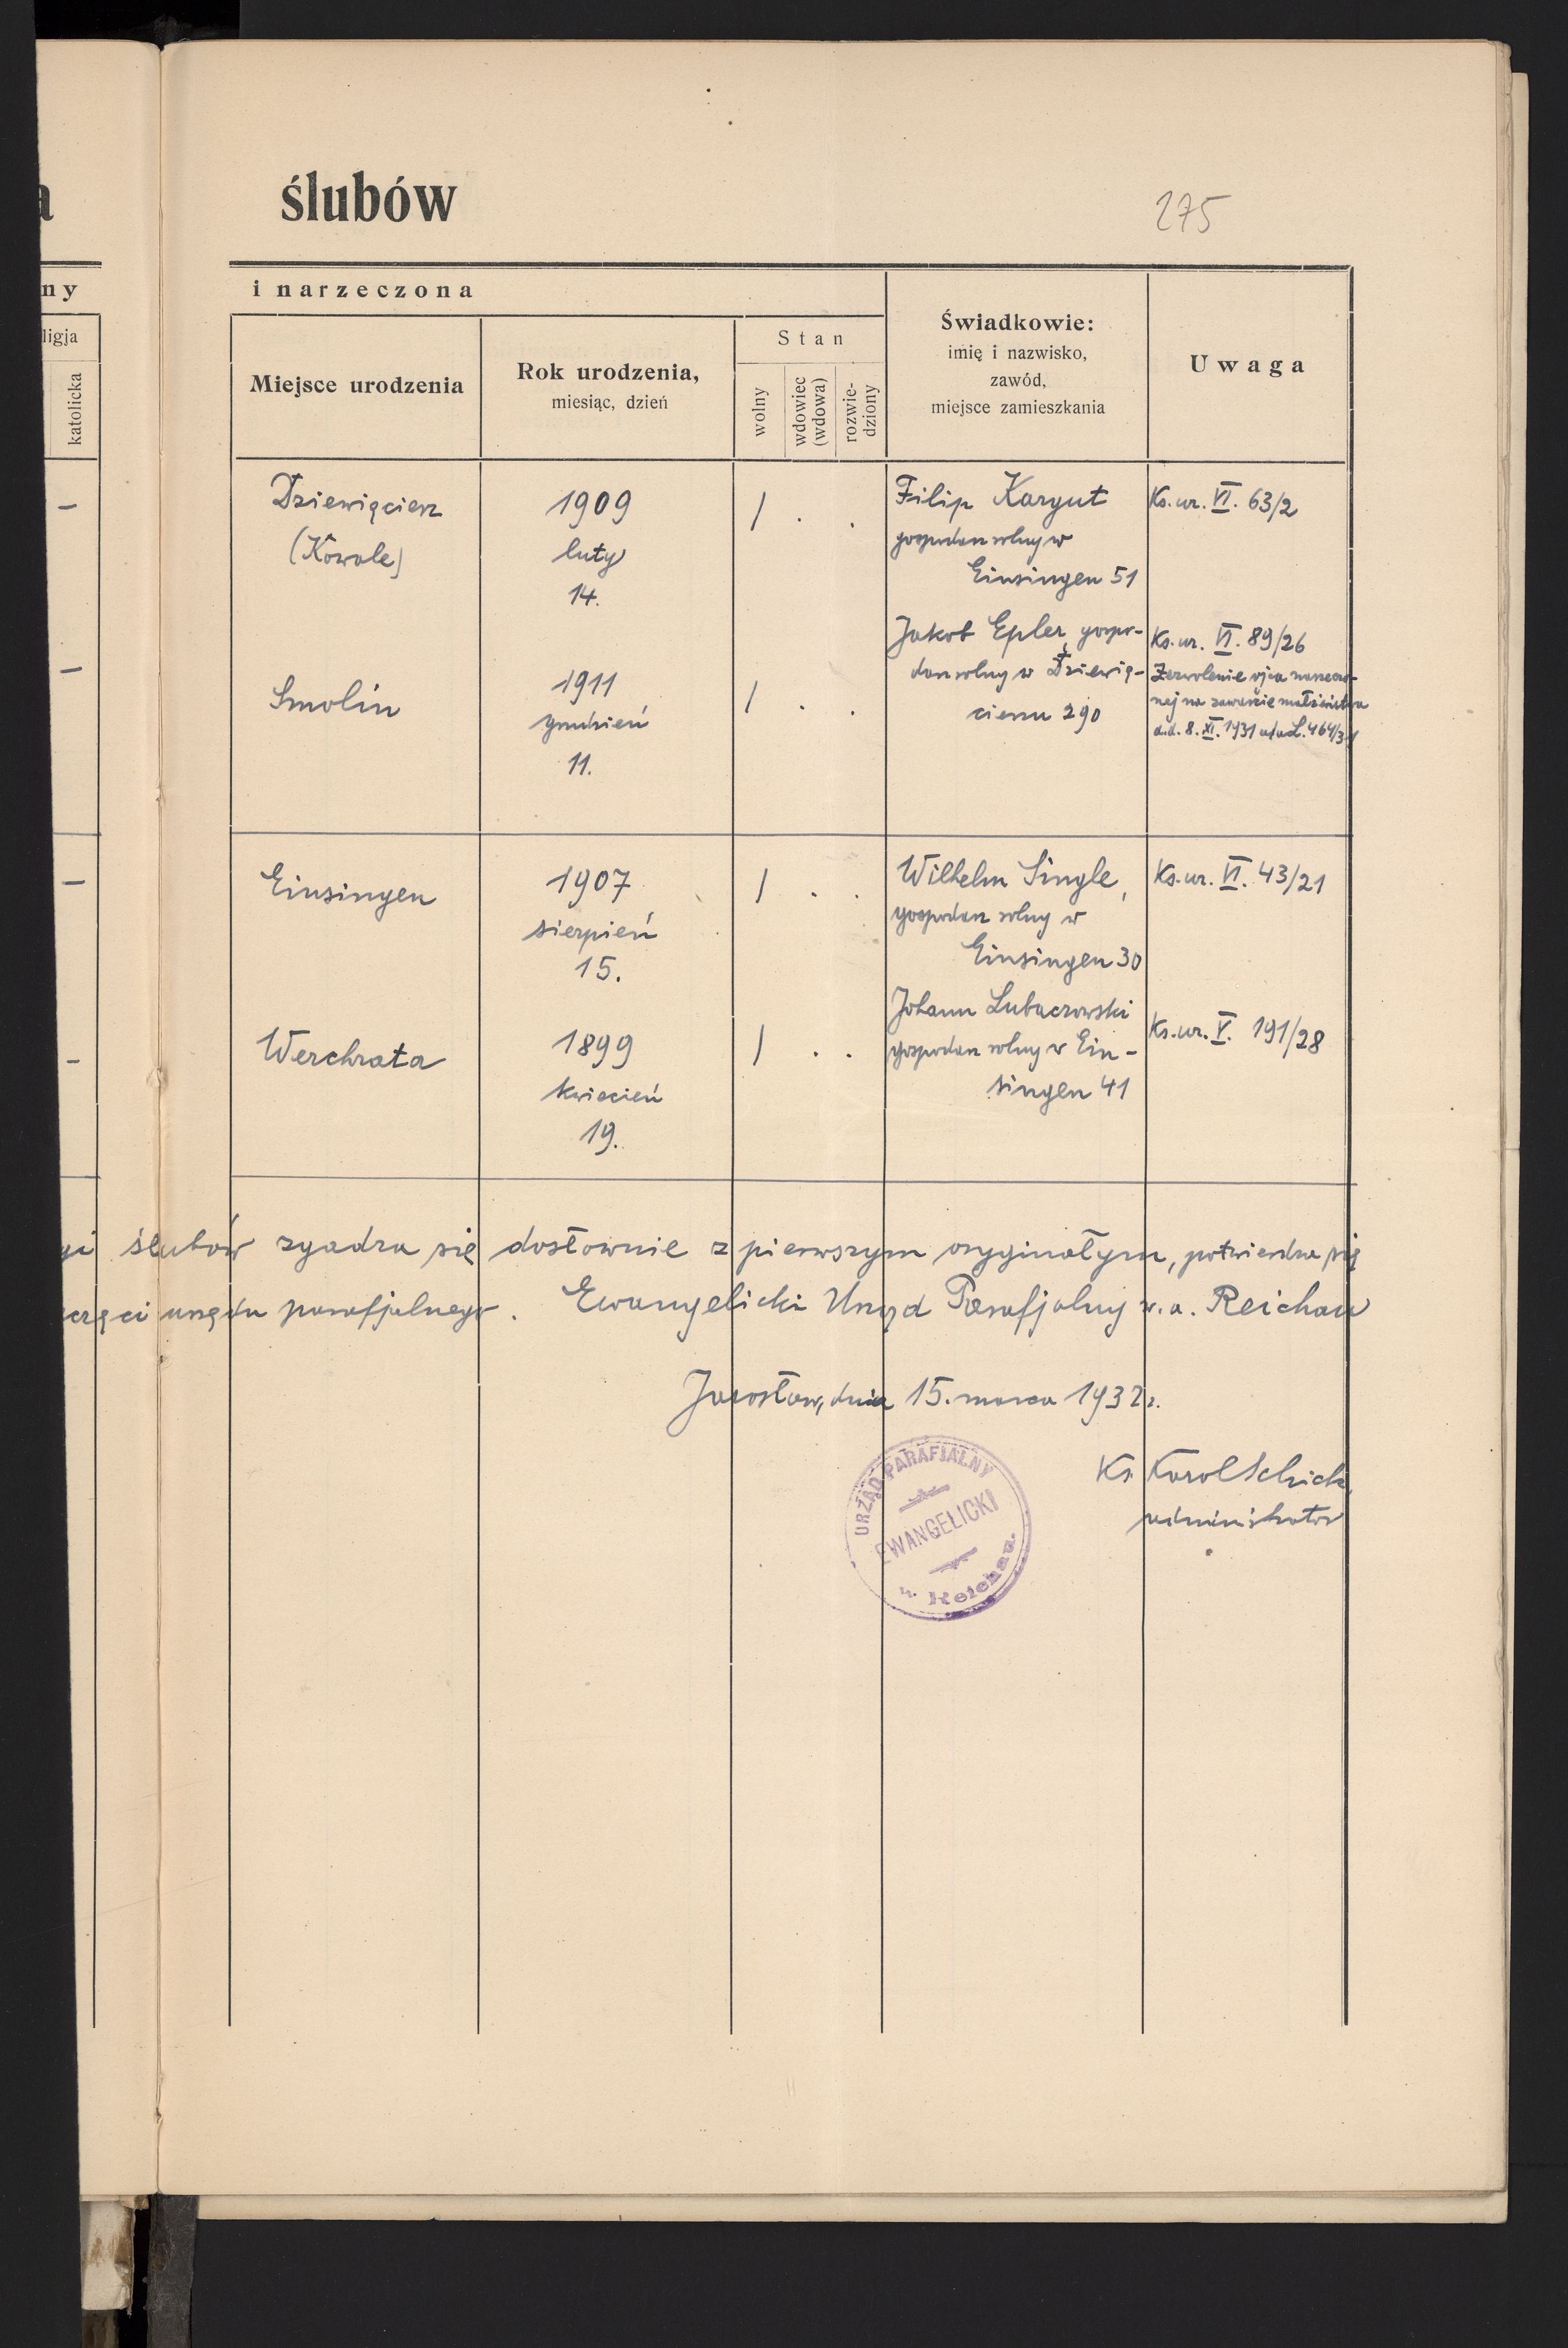 a
ślubów
275
ny
i narzeczona
ligja
katolicka
Miejsce urodzenia
Rok urodzenia,
miesiąc, dzień
Stan
wolny
wdowiec
(wdowa)
rozwie-
dziony
Świadkowie:
imię i nazwisko,
zawód,
miejsce zamieszkania
Uwaga
—
Dziewięcierz
(Kowale)
1909
luty
14.
/ . .
Filip Kargut
gospodarz rolny w
Einsingen 51
Ks. ur. VI. 63/2
—
Smolin
1911
grudzień
11.
/ . .
Jakob Epler, gospo-
darz rolny w Dziewię-
cierzu 290
Ks. ur. VI. 89/26
Zezwolenie ojca narzeczo-
nej na zawarcie małżeństwa
d.d. 8. XI. 1931 L. 464/31
—
Einsingen
1907
sierpień
15.
/ . .
Wilhelm Single,
gospodarz rolny w
Einsingen 30
Ks. ur. VI. 43/21
—
Werchrata
1899
kwiecień
19.
/ . .
Johann Lubaczowski
gospodarz rolny w Ein-
singen 41
Ks. ur. V. 191/28
gi ślubów zgadza się dosłownie z pierwszym oryginałym, potwierdza się
częci urzędu parafjalnego. Ewangelicki Urząd Parafjalny w. a. Reichau
Jarosław, dnia 15. marca 1932 r.
Ks. Karol Schick,
administrator
URZĄD PARAFIALNY
EWANGELICKI
w. Reichau.